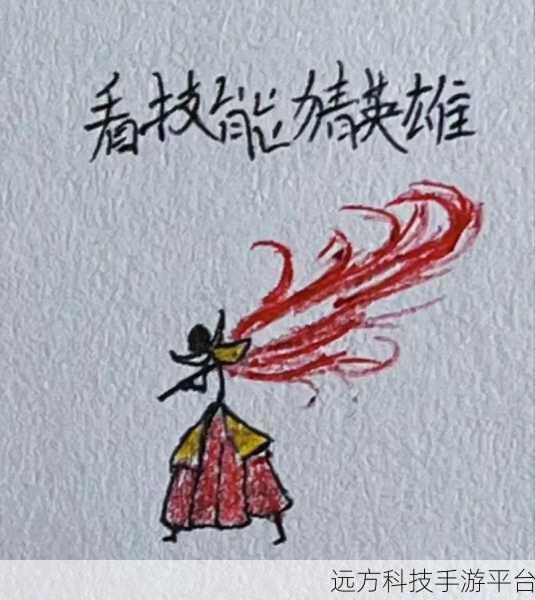 看技能猜英雄
远方科技手游平台